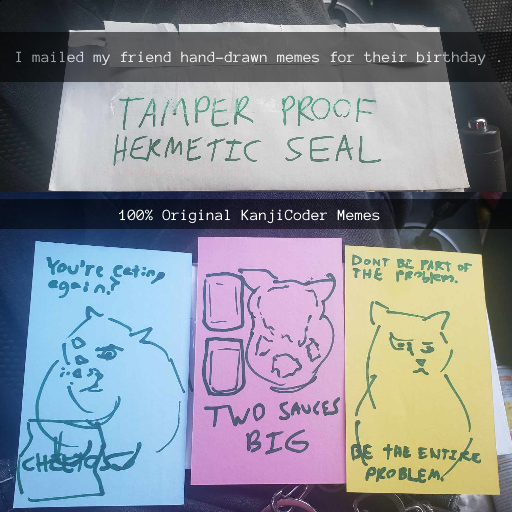 I mailed my friend hand-drawn memes for their birthday .
TAMPER PROOF
HERMETIC SEAL
100% Original KanjiCoder Memes
You're eating
again?
CHEETOS
TWO SAUCES
BIG
DONT BE PART OF
THE PROBLEM.
BE THE ENTIRE
PROBLEM.